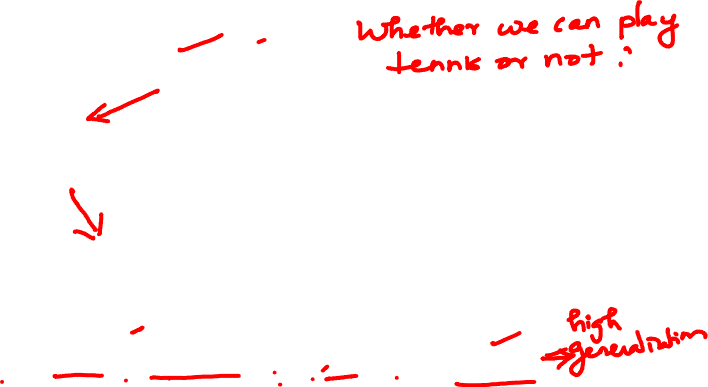 Whether we can play
tennis or not?
high
generalization